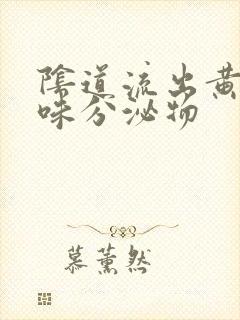 陰道流出黃
味分泌物
慕薰然